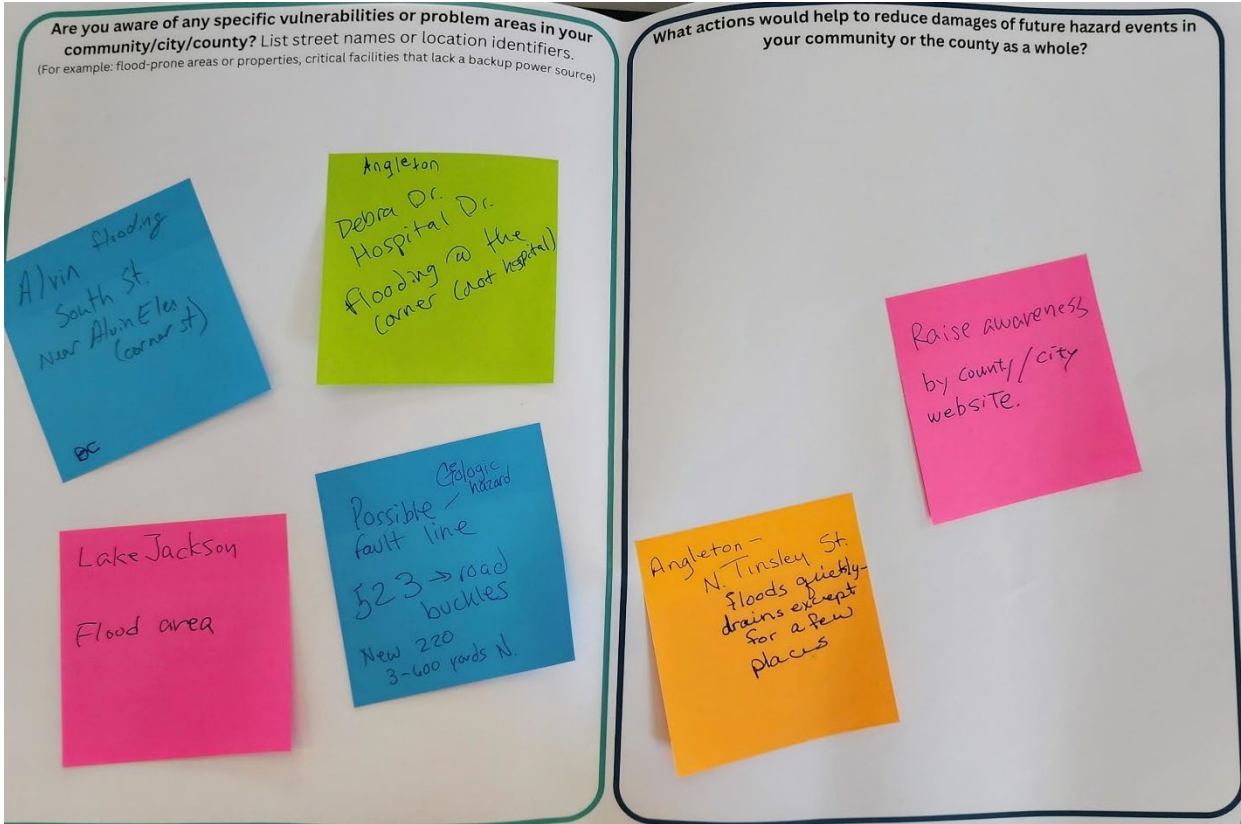 Are you aware of any specific vulnerabilities or problem areas in your
community/city/county? List street names or location identifiers.
(For example: flood-prone areas or properties, critical facilities that lack a backup power source)
Alvin flooding
South St.
Near Alvin Elem
(corner st)
Angleton
Debra Dr.
Hospital Dr.
flooding @ the
corner (not hospital)
Lake Jackson
Flood area
Possible / Geologic hazard
fault line
523 → road
buckles
New 220
3-600 yards N.
What actions would help to reduce damages of future hazard events in
your community or the county as a whole?
Raise awareness
by county/city
website.
Angleton -
N. Tinsley St.
floods quickly-
drains except
for a few
places